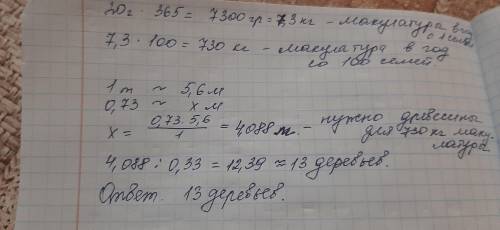 20г · 365 = 7300 гр = 7,3 кг - макулатура в год
с 1 семьи
7,3 · 100 = 730 кг - макулатура в год
со 100 семей.
1 т ≈ 5,6 м
0,73 ≈ х м
х = 0,73 · 5,6 / 1 = 4,088 м. - нужно древесины
для 730 кг маку-
латура
4,088 : 0,33 = 12,39 ≈ 13 деревьев.
Ответ. 13 деревьев.